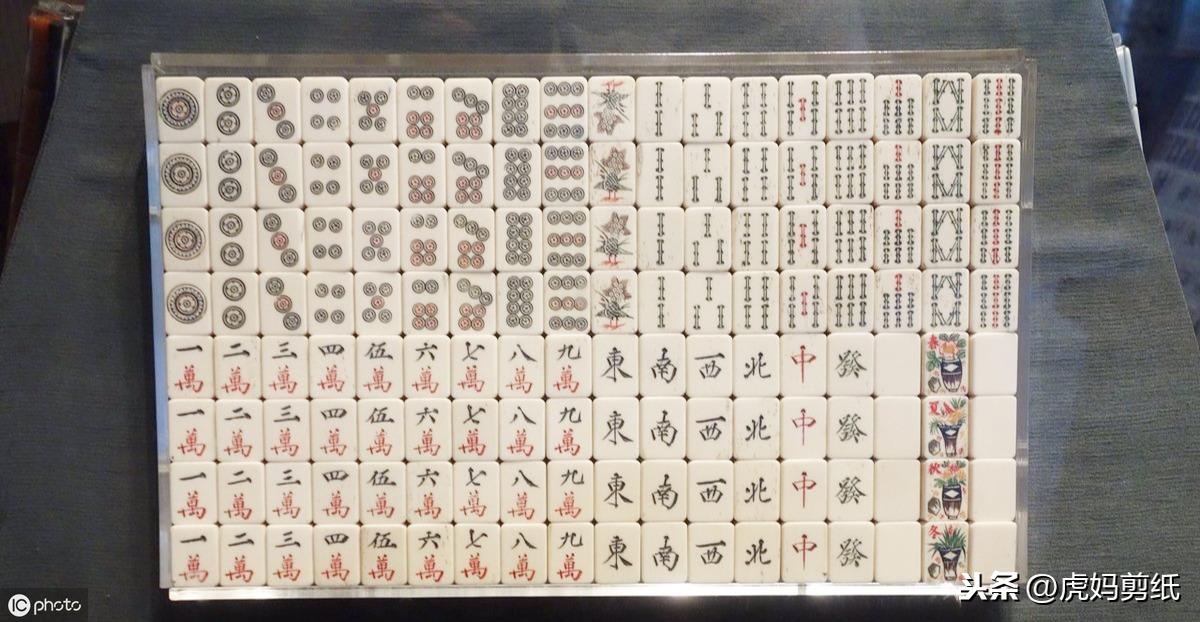 一 二 三 四 伍 六 七 八 九 東 南 西 北 中 發 春
萬 萬 萬 萬 萬 萬 萬 萬 萬
一 二 三 四 伍 六 七 八 九 東 南 西 北 中 發 夏
萬 萬 萬 萬 萬 萬 萬 萬 萬
一 二 三 四 伍 六 七 八 九 東 南 西 北 中 發 秋
萬 萬 萬 萬 萬 萬 萬 萬 萬
一 二 三 四 伍 六 七 八 九 東 南 西 北 中 發 冬
萬 萬 萬 萬 萬 萬 萬 萬 萬
头条 @虎妈剪纸
IC photo